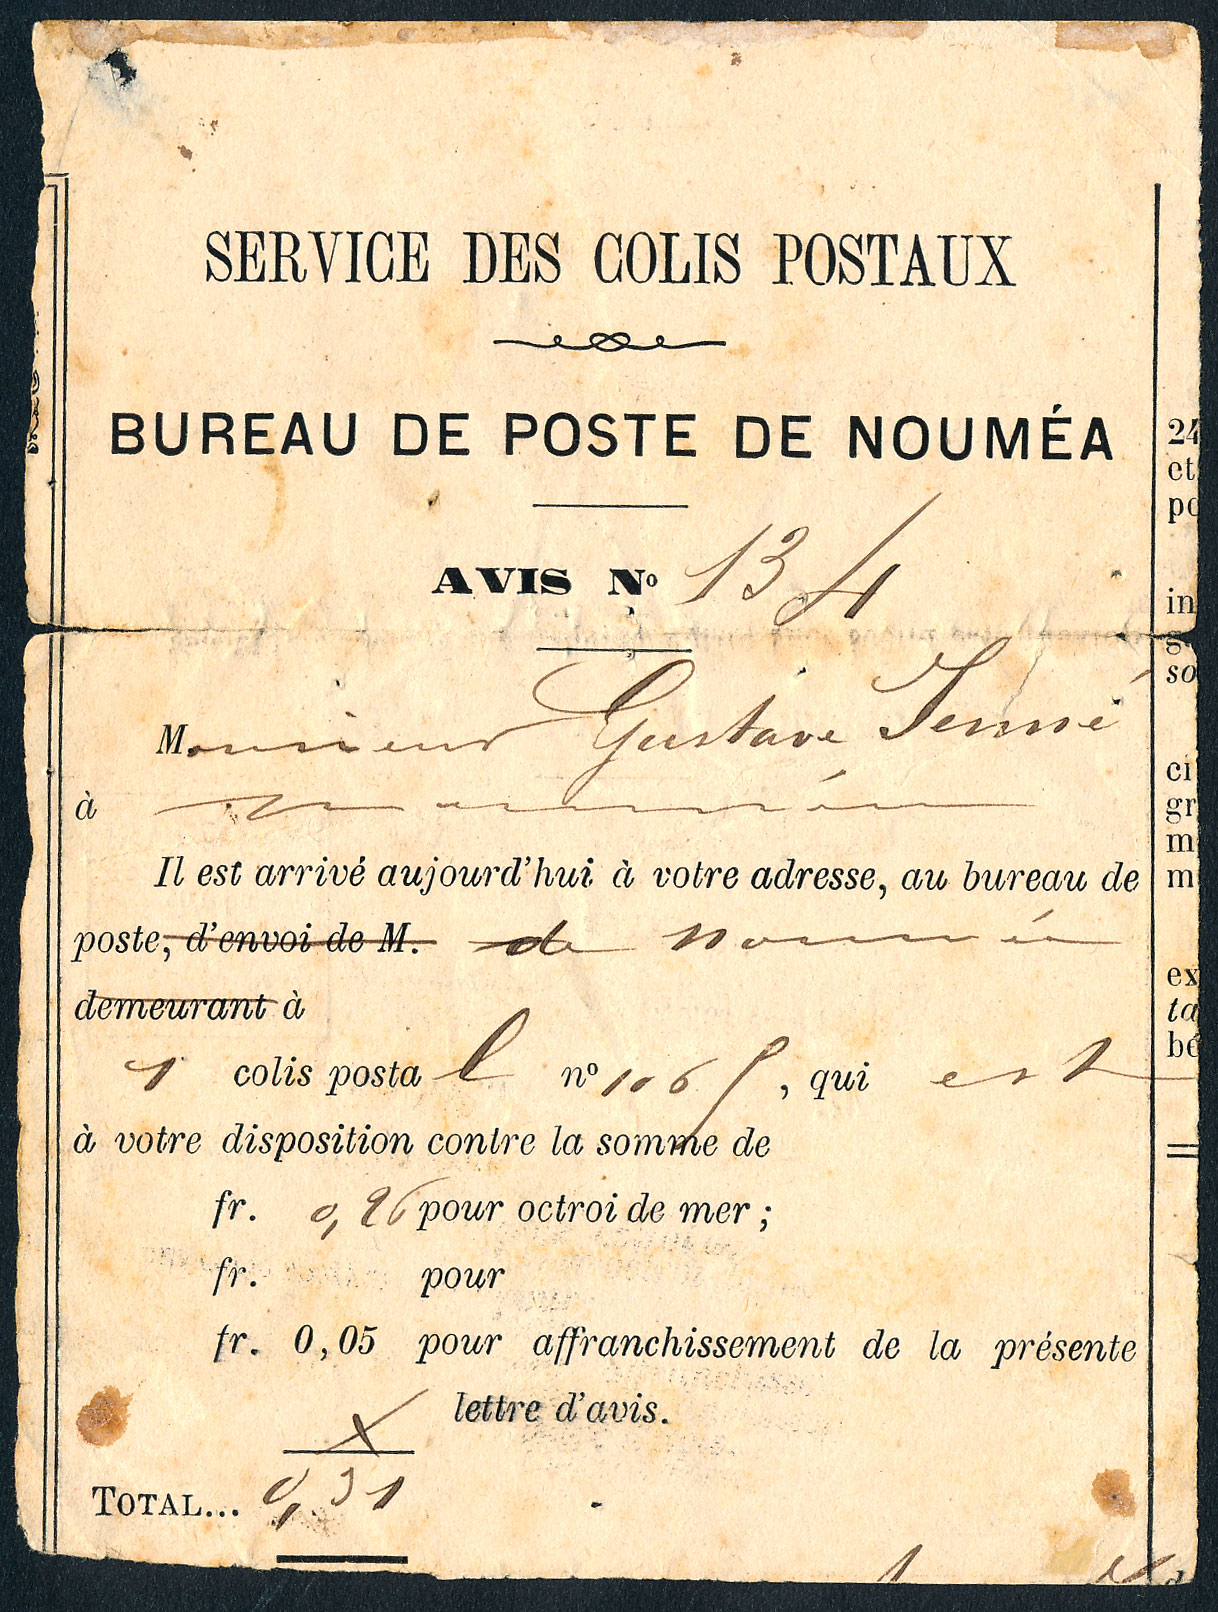 SERVICE DES COLIS POSTAUX
BUREAU DE POSTE DE NOUMÉA
AVIS No 134
Monsieur Gustave
à Nouméa
Il est arrivé aujourd'hui à votre adresse, au bureau de
poste, d'envoi de M. de Nouméa
demeurant à
1 colis postal no 1065, qui est
à votre disposition contre la somme de
fr. 0,26 pour octroi de mer ;
fr. pour
fr. 0,05 pour affranchissement de la présente
lettre d'avis.
TOTAL... 0,31
24
et
po
in
so
ci
gr
m
m
ex
ta
bé